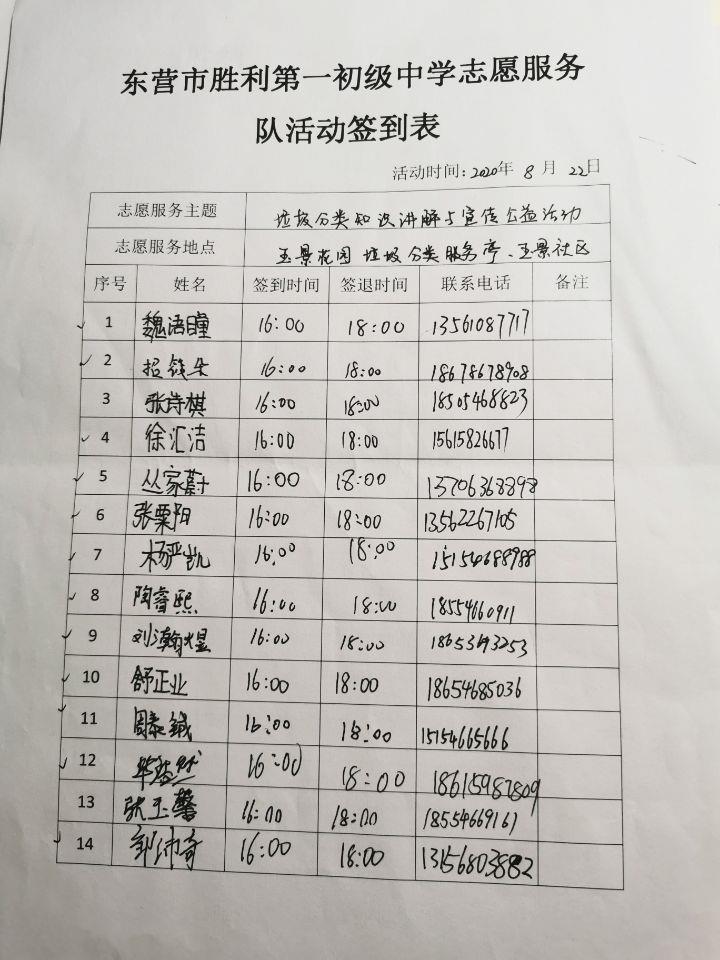 东营市胜利第一初级中学志愿服务
队活动签到表
活动时间:2020年 8 月 22日
志愿服务主题 垃圾分类知识讲解与宣传公益活动
志愿服务地点 玉景花园 垃圾分类服务亭、玉景社区
序号 姓名 签到时间 签退时间 联系电话 备注
✓ 1 魏语瞳 16:00 18:00 13561087717
✓ 2 16:00 18:00 18678678908
3 张诗棋 16:00 18:00 18505468823
✓ 4 徐汇洁 16:00 18:00 15615826677
✓ 5 丛家蔚 16:00 18:00 13706368898
✓ 6 张粟阳 16:00 18:00 13562267105
✓ 7 杨严凯 16:00 18:00 15154688988
✓ 8 陶睿熙 16:00 18:00 18554660911
✓ 9 刘瀚煜 16:00 18:00
✓ 10 舒正业 16:00 18:00 18654685036
✓ 11 周泰铖 16:00 18:00 15154665666
✓ 12 16:00 18:00 18615987809
13 张玉馨 16:00 18:00 18554669161
✓ 14 16:00 18:00 13156803882